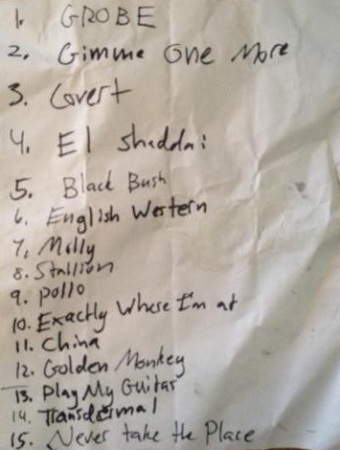 1. GROBE
2. Gimme One More
3. Covert
4. El Shaddai
5. Black Bush
6. English Western
7. Molly
8. Stallion
9. pollo
10. Exactly Where I'm at
11. China
12. Golden Monkey
13. Play My Guitar
14. Transdermal
15. Never take the Place